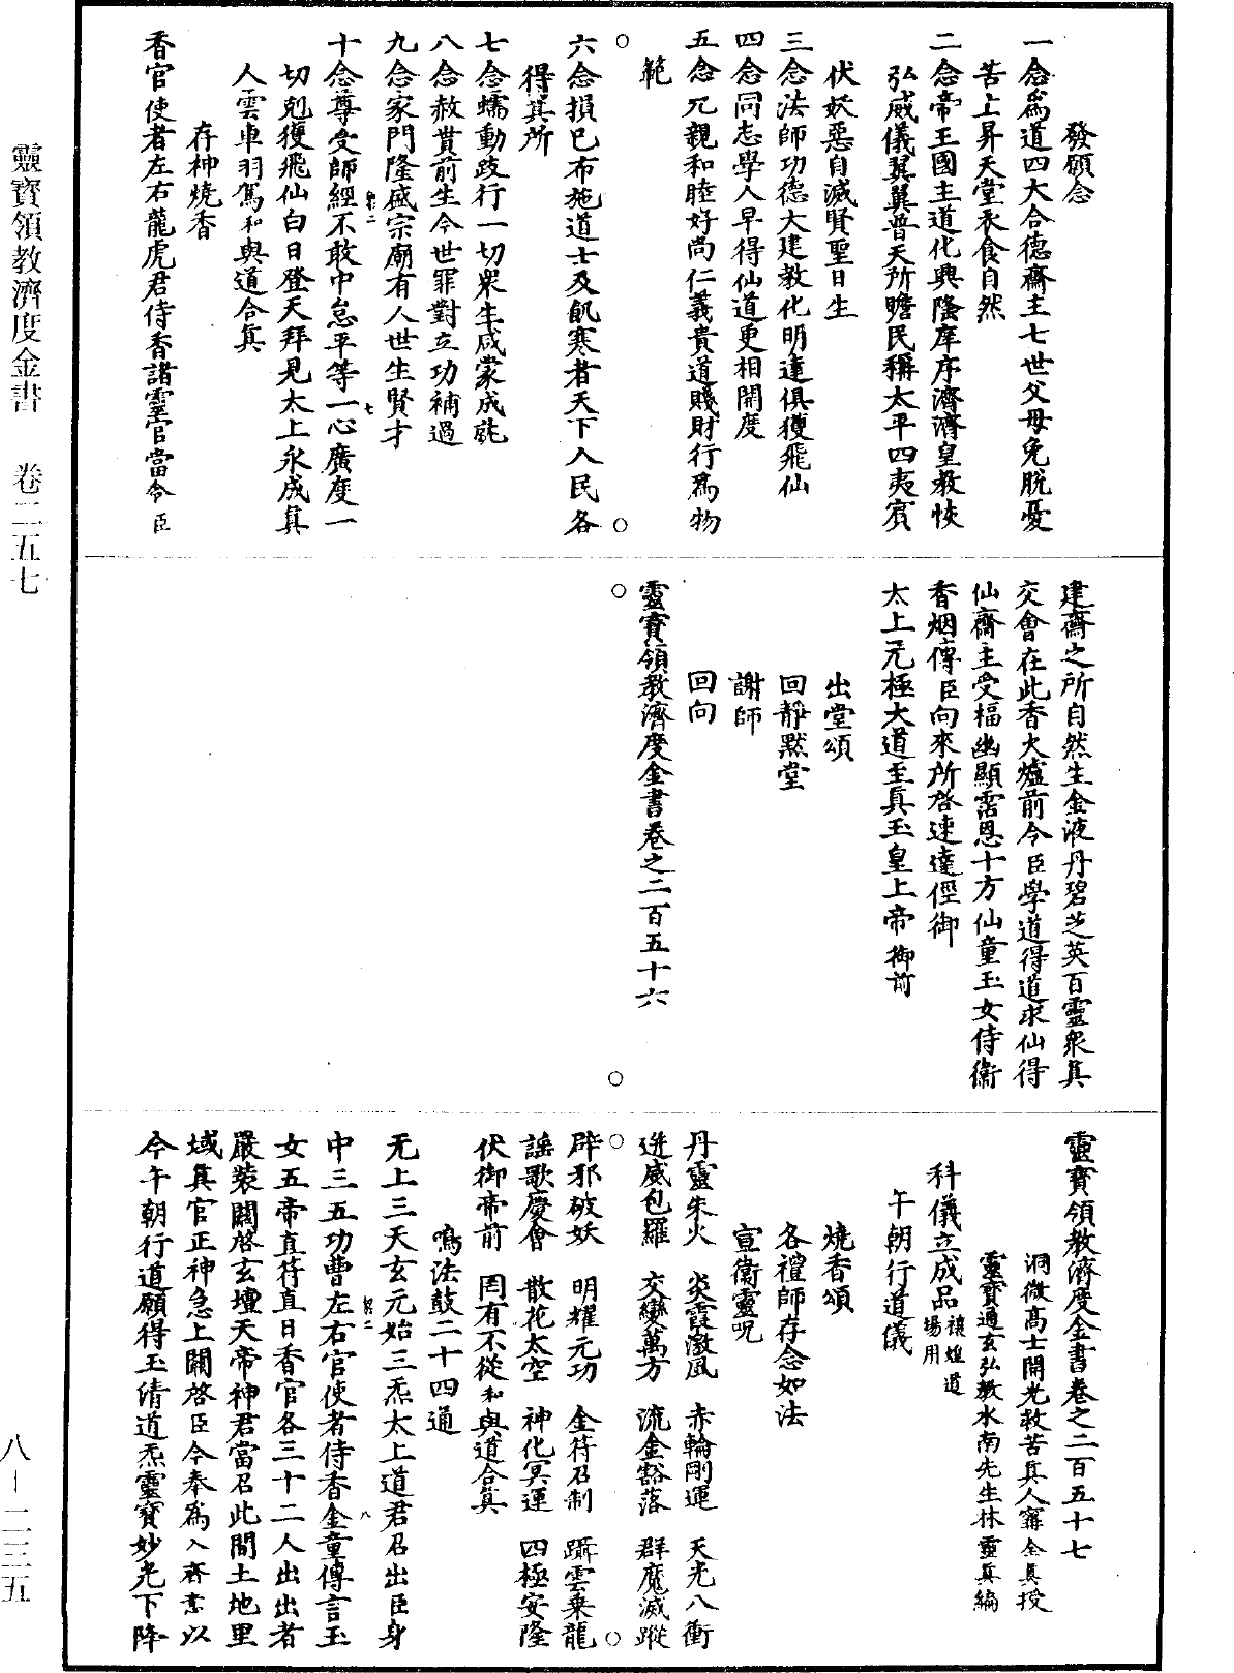 發願念
一念爲道四大合德齋主七世父母免脫憂
苦上昇天堂衣食自然
二念帝王國主道化興隆庠序濟濟皇教恢
弘威儀翼翼普天所瞻民稱太平四夷賓
伏妖惡自滅賢聖日生
三念法師功德大建教化明達俱獲飛仙
四念同志學人早得仙道更相開度
五念九親和睦好尚仁義貴道賤財行爲物
範
六念損己布施道士及飢寒者天下人民各
得其所
七念蠕動跂行一切衆生咸蒙成就
八念赦貰前生今世罪對立功補過
九念家門隆盛宗廟有人世生賢才
十念尊受師經不敢中怠平等一心廣度一
切剋獲飛仙白日登天拜見太上永成眞
人雲車羽駕和與道合眞
存神燒香
香官使者左右龍虎君侍香諸靈官當令臣
建齋之所自然生金液丹碧芝英百靈衆眞
交會在此香火爐前今臣學道得道求仙得
仙齋主受福幽顯霑恩十方仙童玉女侍衞
香烟傳臣向來所啓速達徑御
太上无極大道至眞玉皇上帝御前
出堂頌
回靜默堂
謝師
回向
靈寶領教濟度金書卷之二百五十六
靈寶領教濟度金書卷之二百五十七
洞微高士開光救苦眞人甯全眞授
靈寶通玄弘教水南先生林靈眞編
科儀立成品禳蝗道場用
午朝行道儀
燒香頌
各禮師存念如法
宣衞靈呪
丹靈朱火 炎霞激風 赤輪剛運 天光八衝
迸威包羅 交變萬方 流金豁落 群魔滅蹤
辟邪破妖 明耀元功 金符召制 躡雲乘龍
謠歌慶會 散花太空 神化冥運 四極安隆
伏御帝前 罔有不從和與道合眞
鳴法鼓二十四通
无上三天玄元始三炁太上道君召出臣身
中三五功曹左右官使者侍香金童傳言玉
女五帝直符直日香官各三十二人出出者
嚴裝關啓玄壇天帝神君當召此間土地里
域眞官正神急上關啓臣今奉爲入齋意以
今午朝行道願得玉清道炁靈寶妙光下降
靈寶領教濟度金書 卷二五七
八－二三五